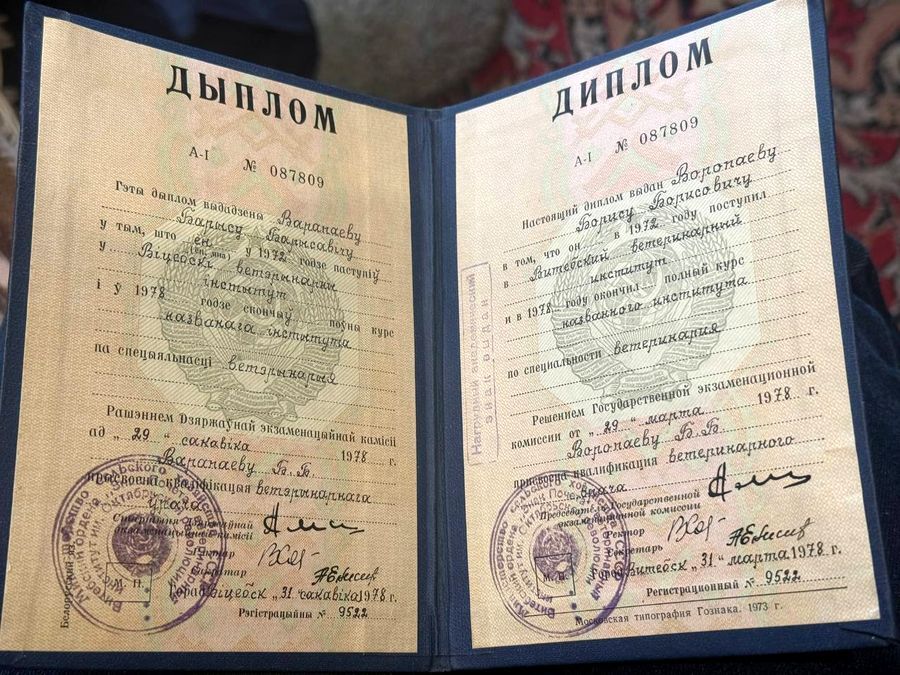 ДЫПЛОМ
А-I № 087809
Гэты дыплом выдадзены Варапаеву
Барысу Барысавічу
у тым, што ён у 1972 годзе паступіў
(ён, яна)
у Віцебскі ветэрынарны
інстытут
і ў 1978 годзе скончыў поўны курс
названага інстытута
па спецыяльнасці ветэрынарыя
Рашэннем Дзяржаўнай экзаменацыйнай камісіі
ад „29" сакавіка 1978 г.
Варапаеву Б. Б.
прысвоена кваліфікацыя ветэрынарнага
урача
Старшыня Дзяржаўнай
экзаменацыйнай камісіі
Рэктар
Сакратар
Горад Віцебск „31" сакавіка 1978 г.
Рэгістрацыйны № 9522
М. П.
ДИПЛОМ
А-I № 087809
Настоящий диплом выдан Воропаеву
Борису Борисовичу
в том, что он в 1972 году поступил
в Витебский ветеринарный
институт
и в 1978 году окончил полный курс
названного института
по специальности ветеринария
Решением Государственной экзаменационной
комиссии от „29" марта 1978 г.
Воропаеву Б. Б.
присвоена квалификация ветеринарного
врача
Председатель Государственной
экзаменационной комиссии
Ректор
Секретарь
Город Витебск „31" марта 1978 г.
Регистрационный № 9522
М. П.
Московская типография Гознака. 1973 г.
Нагрудный академический
знак выдан